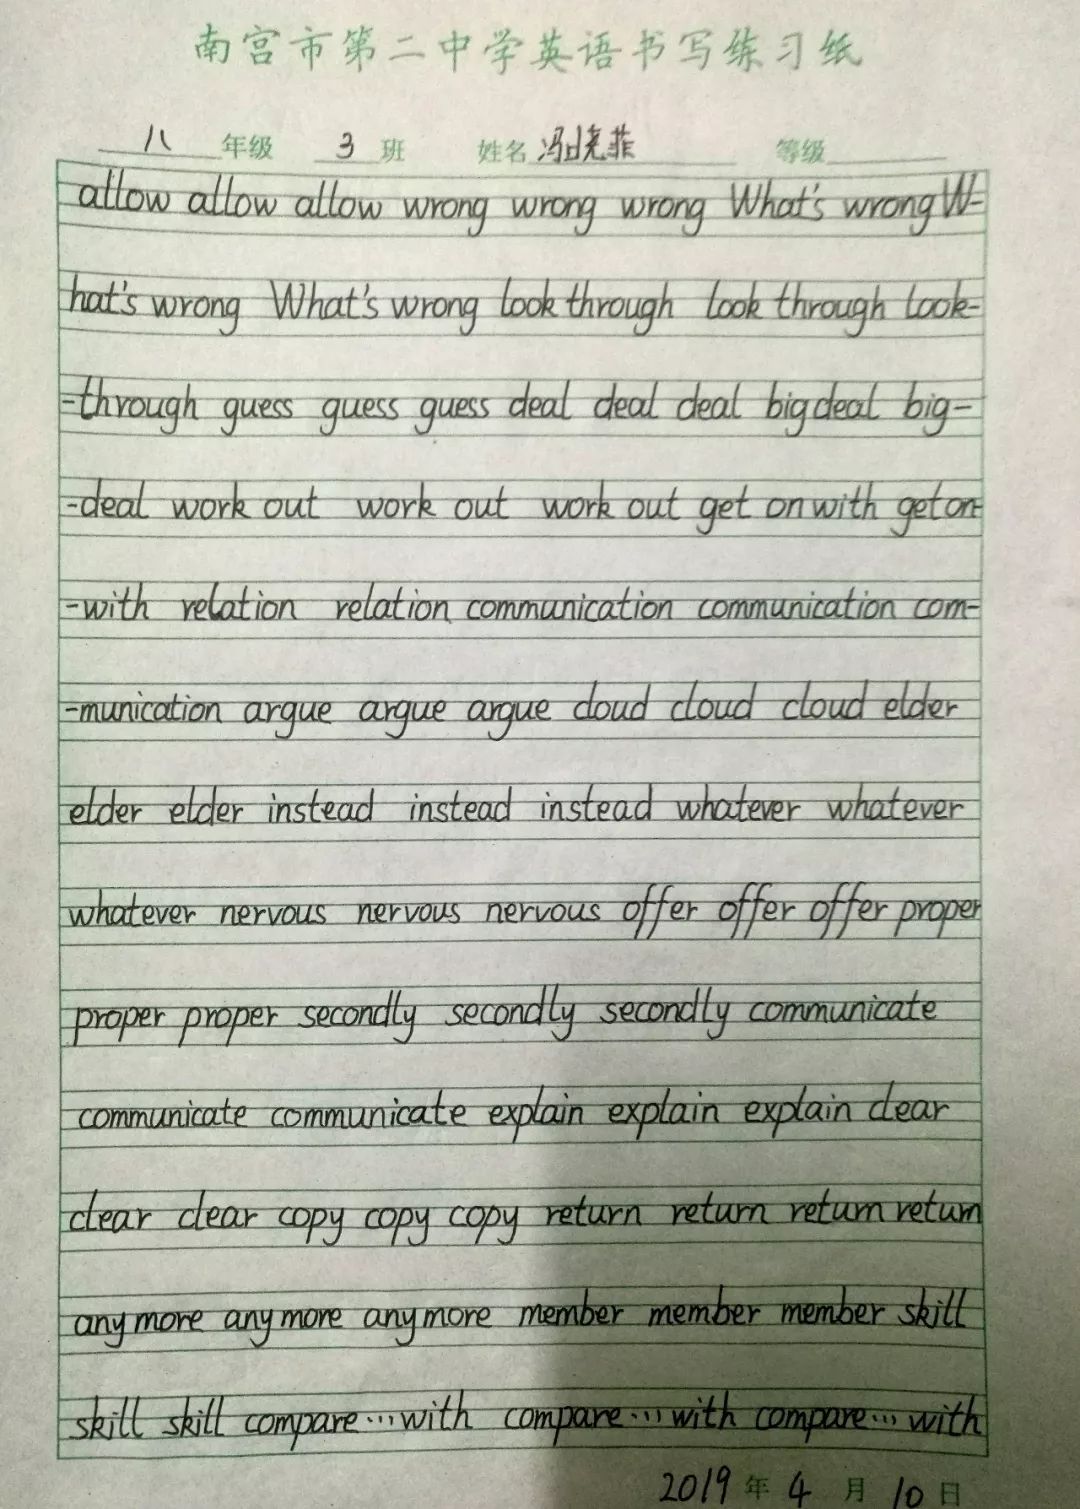 南宫市第二中学英语书写练习纸
八 年级 3 班 姓名 冯晓菲 等级
allow allow allow wrong wrong wrong What's wrong W-
hat's wrong What's wrong look through look through look-
-through guess guess guess deal deal deal big deal big-
-deal work out work out work out get on with get on-
-with relation relation communication communication com-
-munication argue argue argue cloud cloud cloud elder
elder elder instead instead instead whatever whatever
whatever nervous nervous nervous offer offer offer proper
proper proper secondly secondly secondly communicate
communicate communicate explain explain explain clear
clear clear copy copy copy return return return return
anymore anymore anymore member member member skill
skill skill compare…with compare…with compare…with
2019 年 4 月 10 日